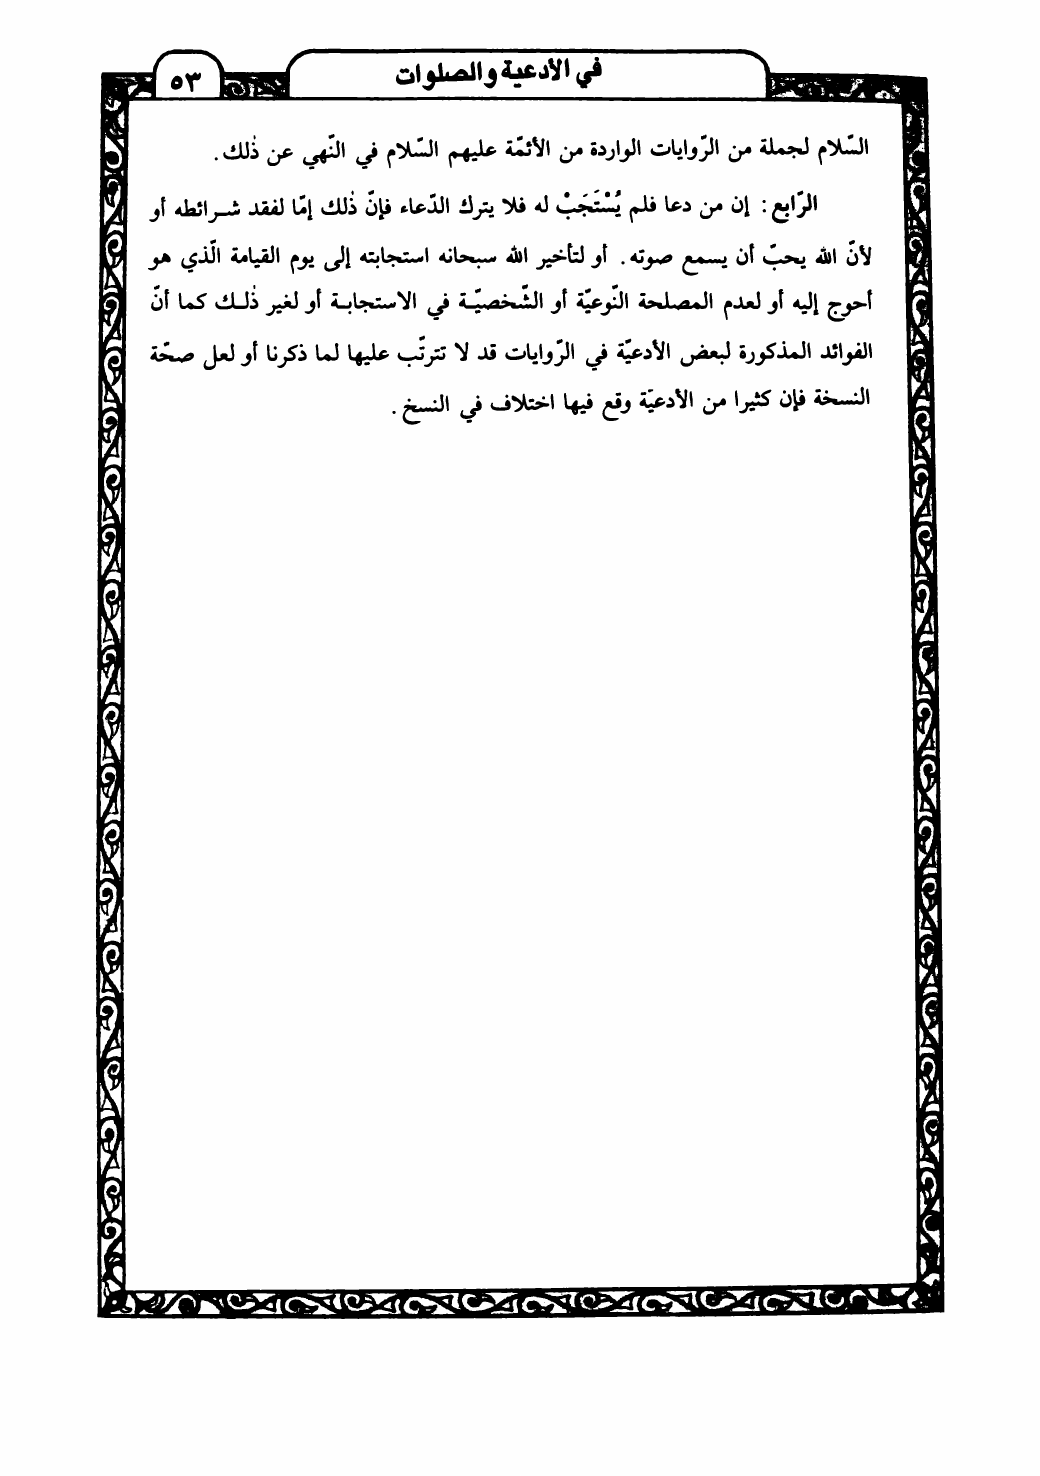 في الأدعية والصلوات
٥٣
السّلام لجملة من الرّوايات الواردة من الأئمّة عليهم السّلام في النّهي عن ذٰلك.
الرّابع: إن من دعا فلم يُسْتَجَبْ له فلا يترك الدّعاء فإنّ ذٰلك إمّا لفقد شـرائطه أو
لأنّ الله يحبّ أن يسمع صوته. أو لتأخير الله سبحانه استجابته إلى يوم القيامة الّذي هو
أحوج إليه أو لعدم المصلحة النّوعيّة أو الشّخصيّـة في الاستجابـة أو لغير ذٰلـك كما أنّ
الفوائد المذكورة لبعض الأدعيّة في الرّوايات قد لا تترتّب عليها لما ذكرنا أو لعل صحّة
النسخة فإن كثيرا من الأدعيّة وقع فيها اختلاف في النسخ.